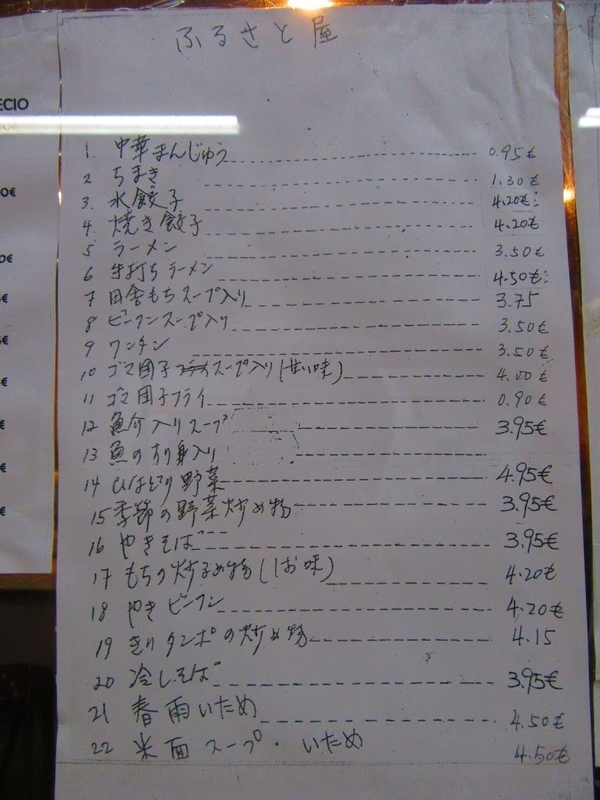 ふるさと屋
ECIO
1. 中華まんじゅう 0.95€
2 ちまき 1.30€
3. 水餃子 4.20€
4. 焼き餃子 4.20€
5 ラーメン 3.50€
6 手打ちラーメン 4.50€
7 田舎もちスープ入り 3.75
8 ビーフンスープ入り 3.50€
9 ワンタン 3.50€
10 ゴマ団子スープ入り(甘い味) 4.00€
11 ゴマ団子フライ 0.90€
12 魚介入りスープ 3.95€
13 魚のすり身入り
14 野菜 4.95€
15 季節の野菜炒め物 3.95€
16 やきそば 3.95€
17 もちの炒め物(しお味) 4.20€
18 やきビーフン 4.20€
19 きりタンポの炒め物 4.15
20 冷しそば 3.95€
21 春雨いため 4.50€
22 米面スープ・いため 4.50€